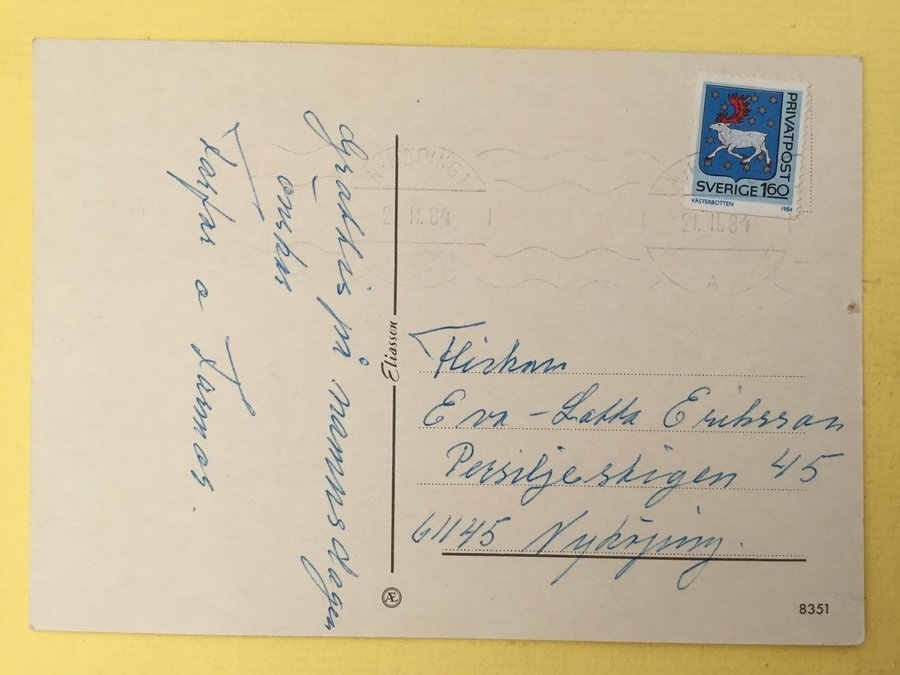 Grattis på namnsdagen
önskar
Farfar o Farmor.
Eliasson
Æ
NYKÖPING 1
21.11.84
21.11.84
A
PRIVATPOST
SVERIGE 160
VÄSTERBOTTEN
1984
Fröken
Eva-Lotta Eriksson
Persiljestigen 45
61145 Nyköping.
8351